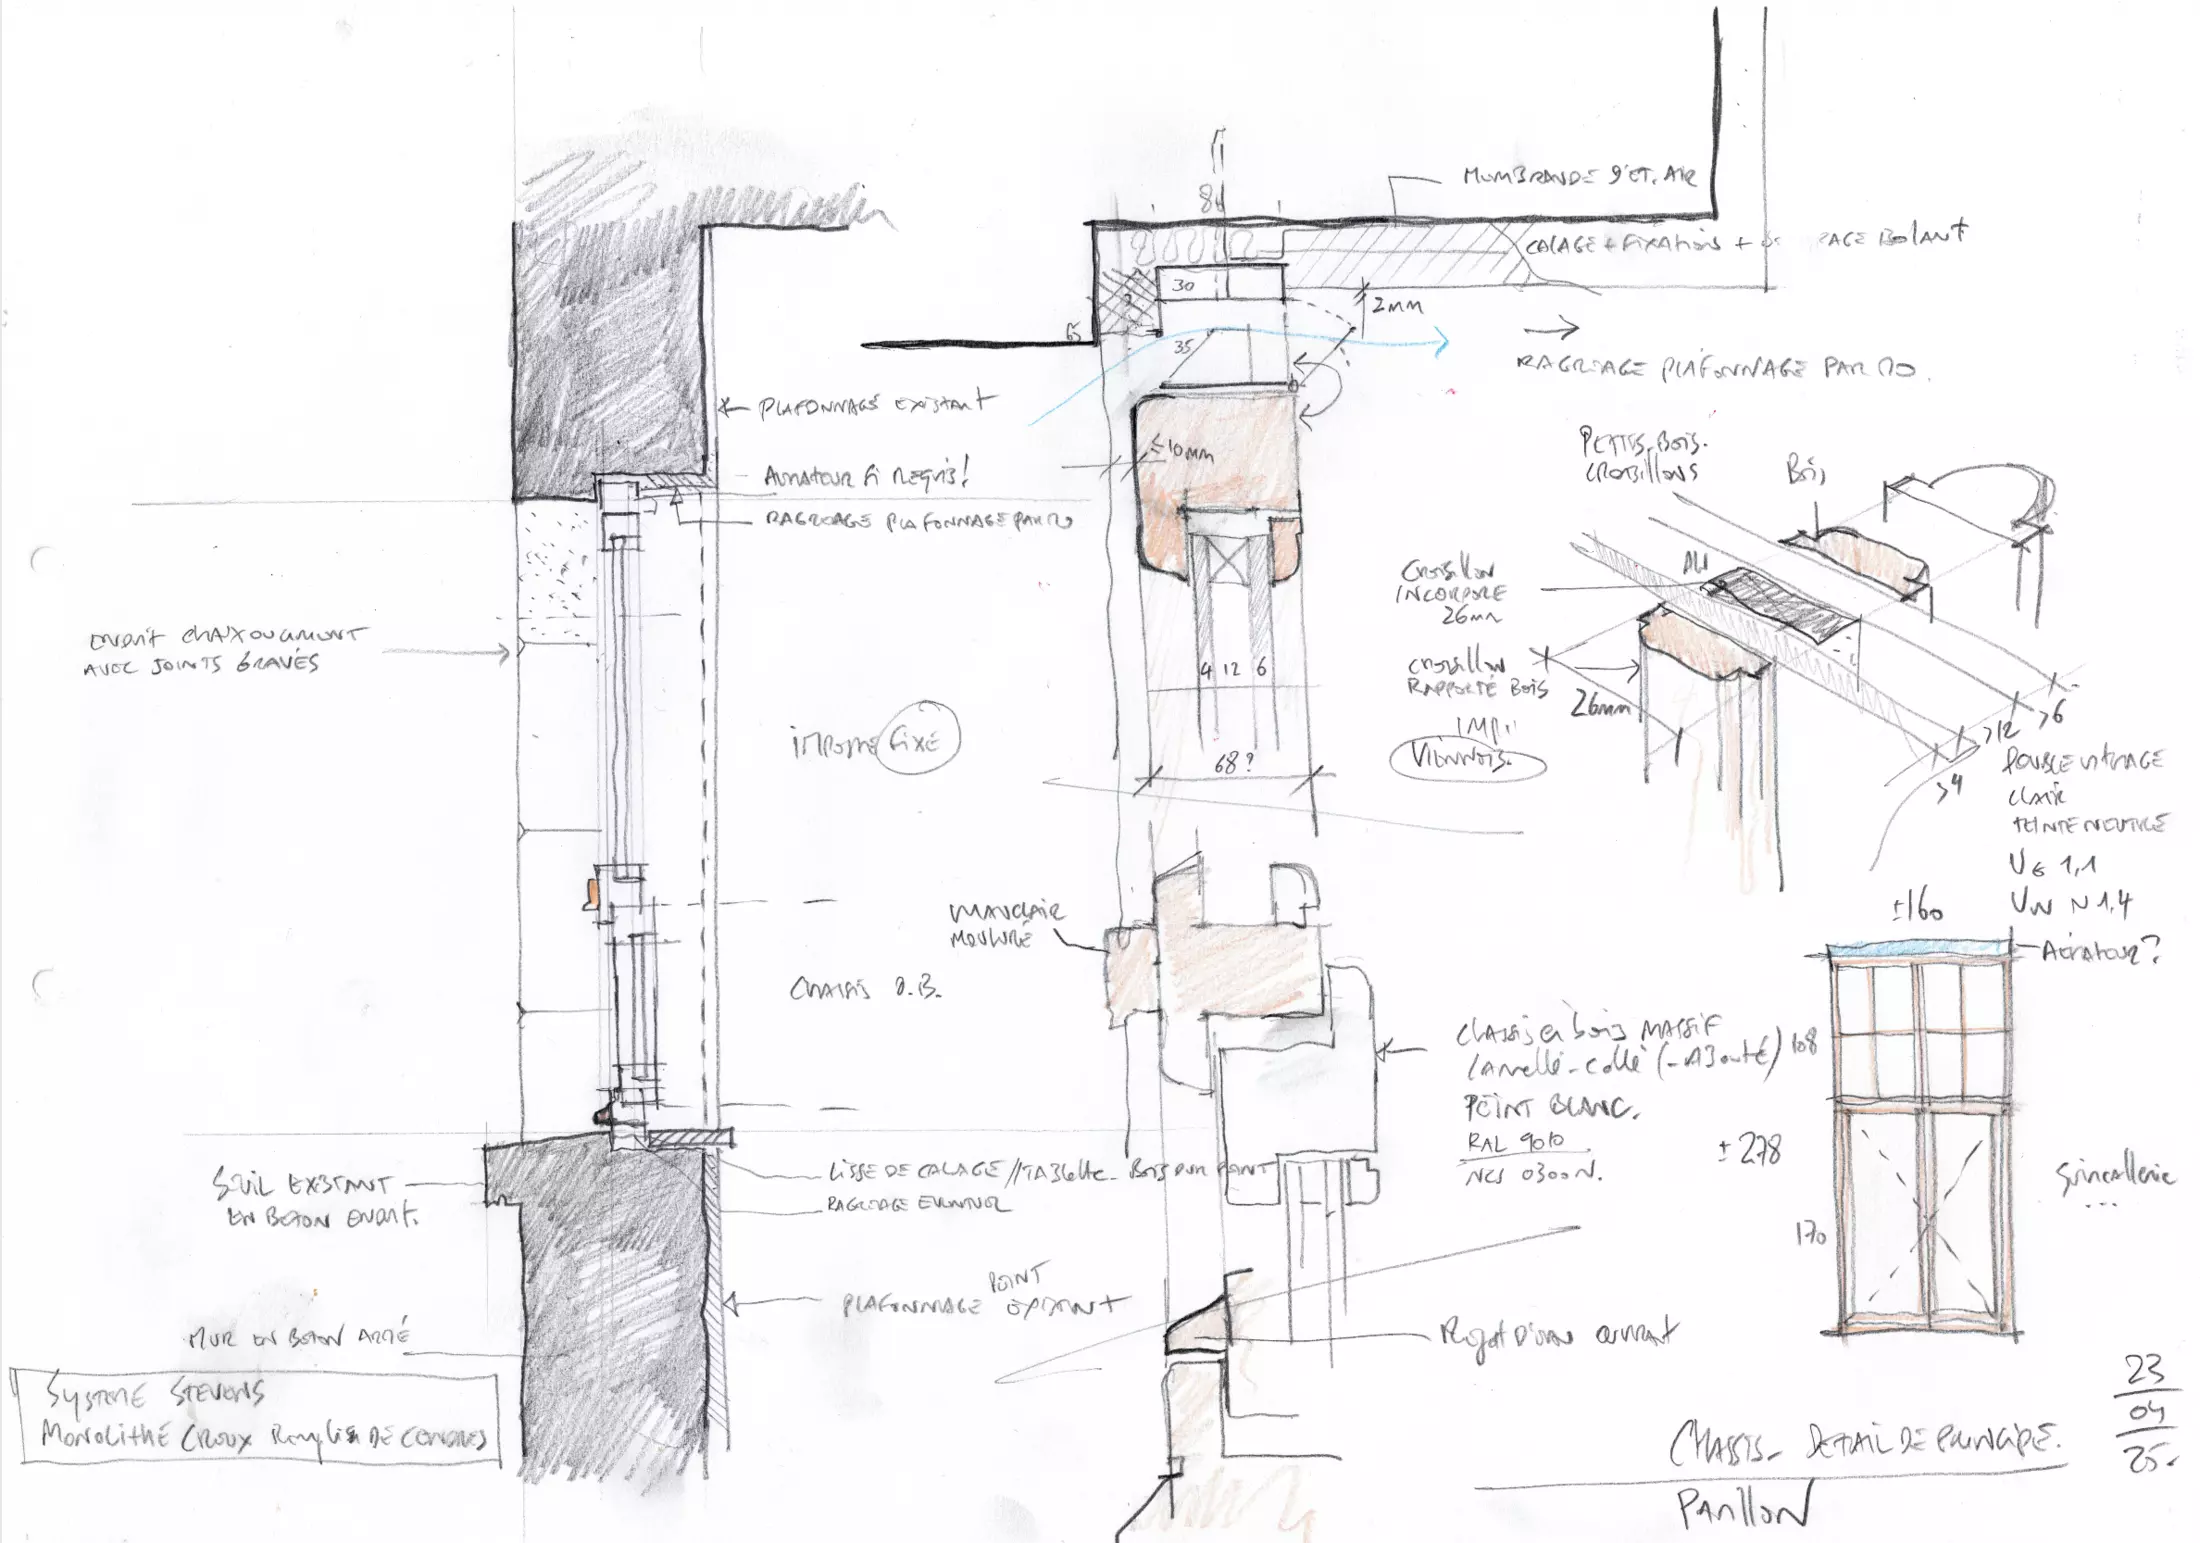 MEMBRANE D'ET. AIR
84
CALAGE + FIXATIONS +
ISOLANT
30
2mm
65
35
RAGRÉAGE PLAFONNAGE PAR MO.
PLAFONNAGE EXISTANT
≤10mm
AÉRATEUR si REQUIS!
RAGRÉAGE PLAFONNAGE PAR MO
PETITS-BOIS.
CROISILLONS
Bois
ALU
CROISILLON
INCORPORÉ
26mm
CROISILLON
RAPPORTÉ BOIS
26mm
VIENNOIS.
ENDUIT CHAUX OU CIMENT
AVEC JOINTS GRAVÉS
4 12 6
IMPOSTE FIXE
68?
>6
>12
>4
DOUBLE VITRAGE
CLAIR
TEINTE NEUTRE
UG 1,1
UW N 1,4
±160
AÉRATEUR?
MAUCLAIR
MOULURÉ
CHASSIS O.B.
CHASSIS EN bois MASSIF
LAMELLÉ-COLLÉ (-ABOUTÉ)
PEINT BLANC.
RAL 9010
NCS 0300N.
108
±278
170
Quincallerie
...
SEUIL EXISTANT
EN BETON ENDUIT.
LISSE DE CALAGE // TABLETTE - BOIS DUR PEINT
RAGRÉAGE EVENTUEL
PLAFONNAGE PEINT EXISTANT
Rejet D'EAU OUVRANT
MUR EN BETON ARMÉ
SYSTEME STEVENS
MONOLITHE CREUX Remplies DE CENDRES
CHASSIS - DETAIL DE PRINCIPE.
PAVILLON
23
04
25.